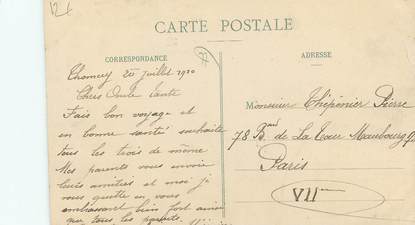 12 f
CARTE POSTALE
CORRESPONDANCE
ADRESSE
Thomery 20 juillet 1910
Chers Oncle tante
Fais bon voyage et
en bonne santé souhaite
tous les trois de même
Mes parents vous envoie
leurs amitiés et moi je
vous quitte en vous
embrassant bien fort ainsi
que tous les parents.
Monsieur Thépenier Pierre
78 Bard de La Tour Maubourg
Paris
VII